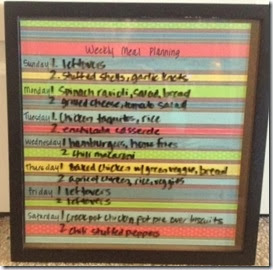 Weekly Meal Planning
Sunday 1. leftovers
2. stuffed shells, garlic knots
Monday 1 Spinach ravioli, salad, bread
2 grilled cheese, tomato salad
Tuesday 1. Chicken taquitos, rice
2. enchilada casserole
Wednesday 1 hamburgers, home fries
2. chili macaroni
Thursday 1 Baked chicken w/ green veggie, bread
2 apricot chicken, rice, veggies
Friday 1 leftovers
2 leftovers
Saturday 1 crock pot chicken pot pie over biscuits
2 chili stuffed peppers